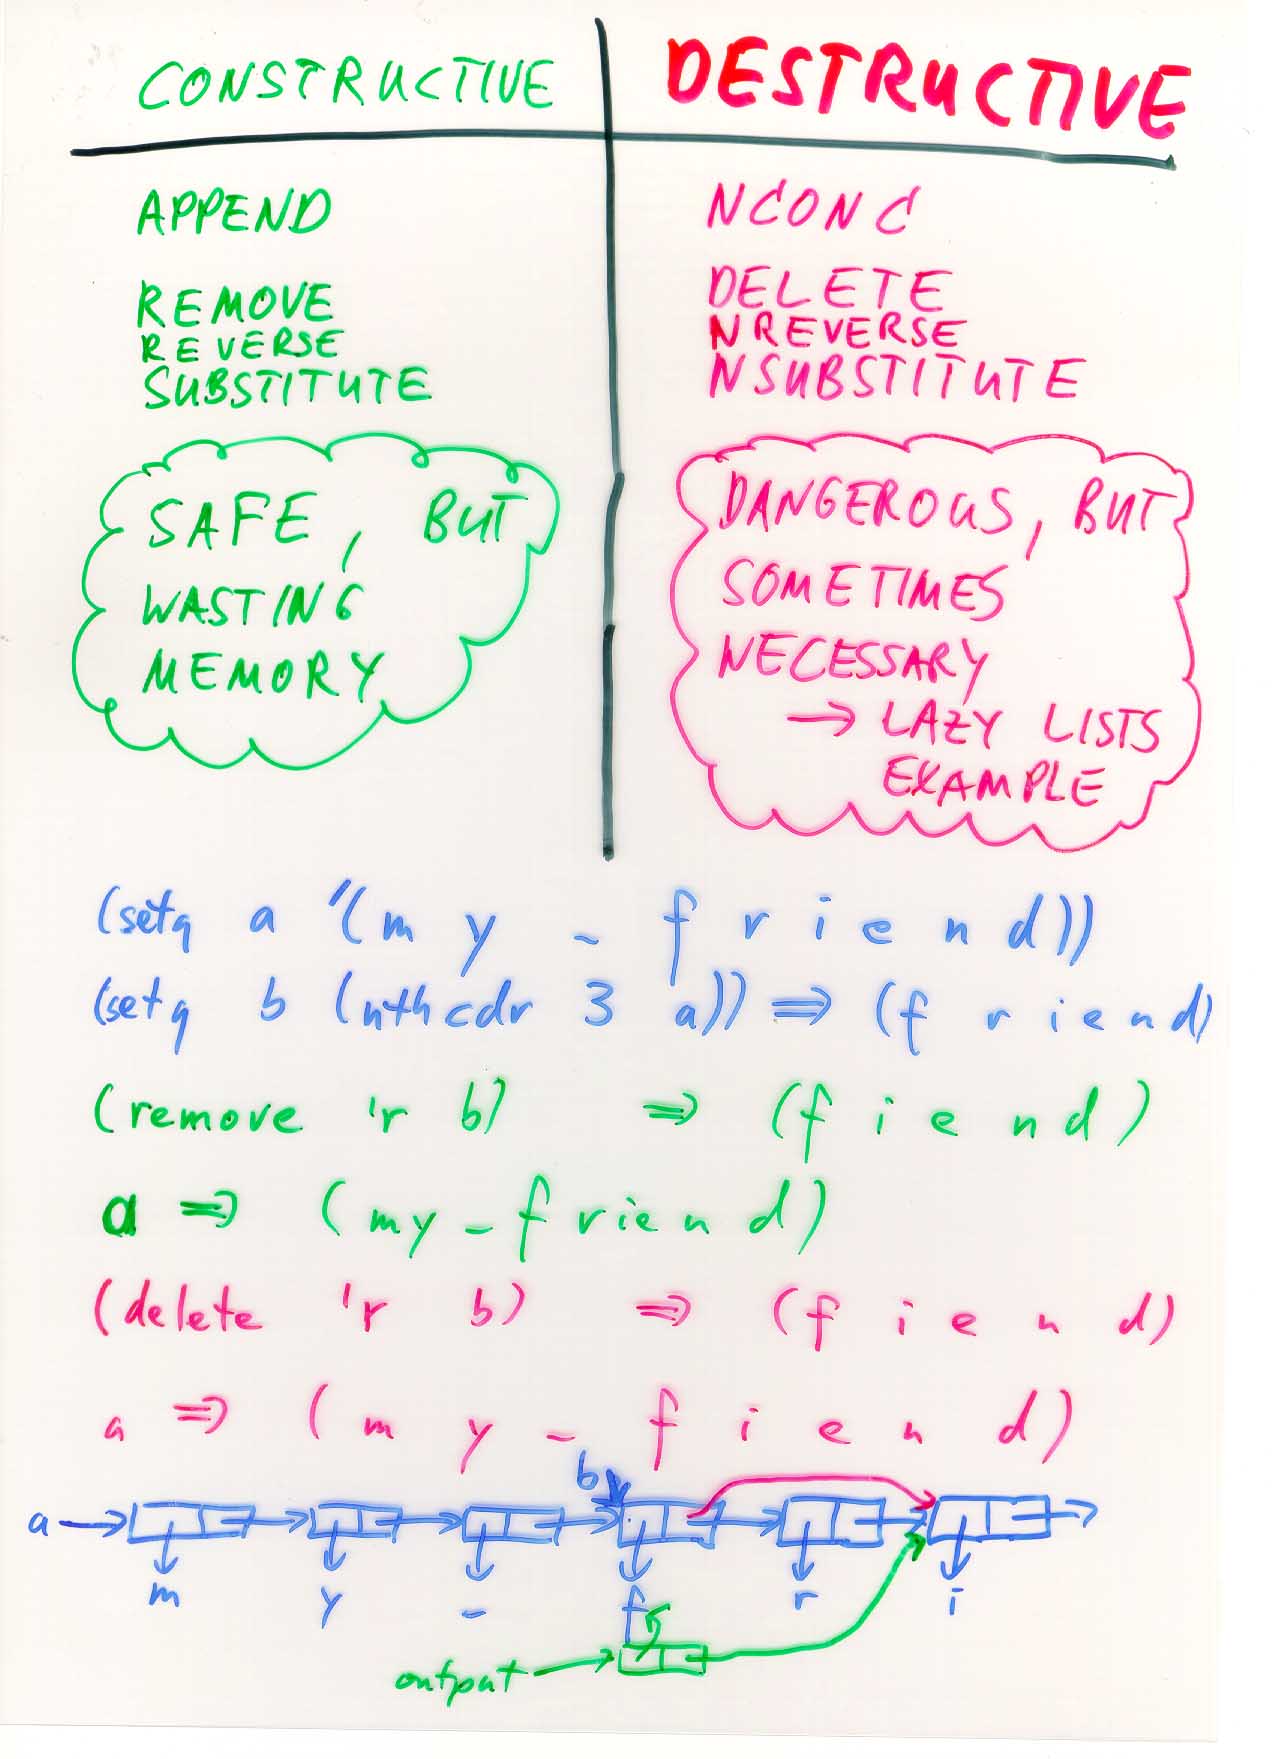 CONSTRUCTIVE
DESTRUCTIVE
APPEND
REMOVE
REVERSE
SUBSTITUTE
SAFE, BUT
WASTING
MEMORY
NCONC
DELETE
NREVERSE
NSUBSTITUTE
DANGEROUS, BUT
SOMETIMES
NECESSARY
→ LAZY LISTS
EXAMPLE
(setq a '(m y - f r i e n d))
(setq b (nthcdr 3 a)) ⇒ (f r i e n d)
(remove 'r b) ⇒ (f i e n d)
a ⇒ (m y - f r i e n d)
(delete 'r b) ⇒ (f i e n d)
a ⇒ (m y - f i e n d)
b
a
m y - f r i
output